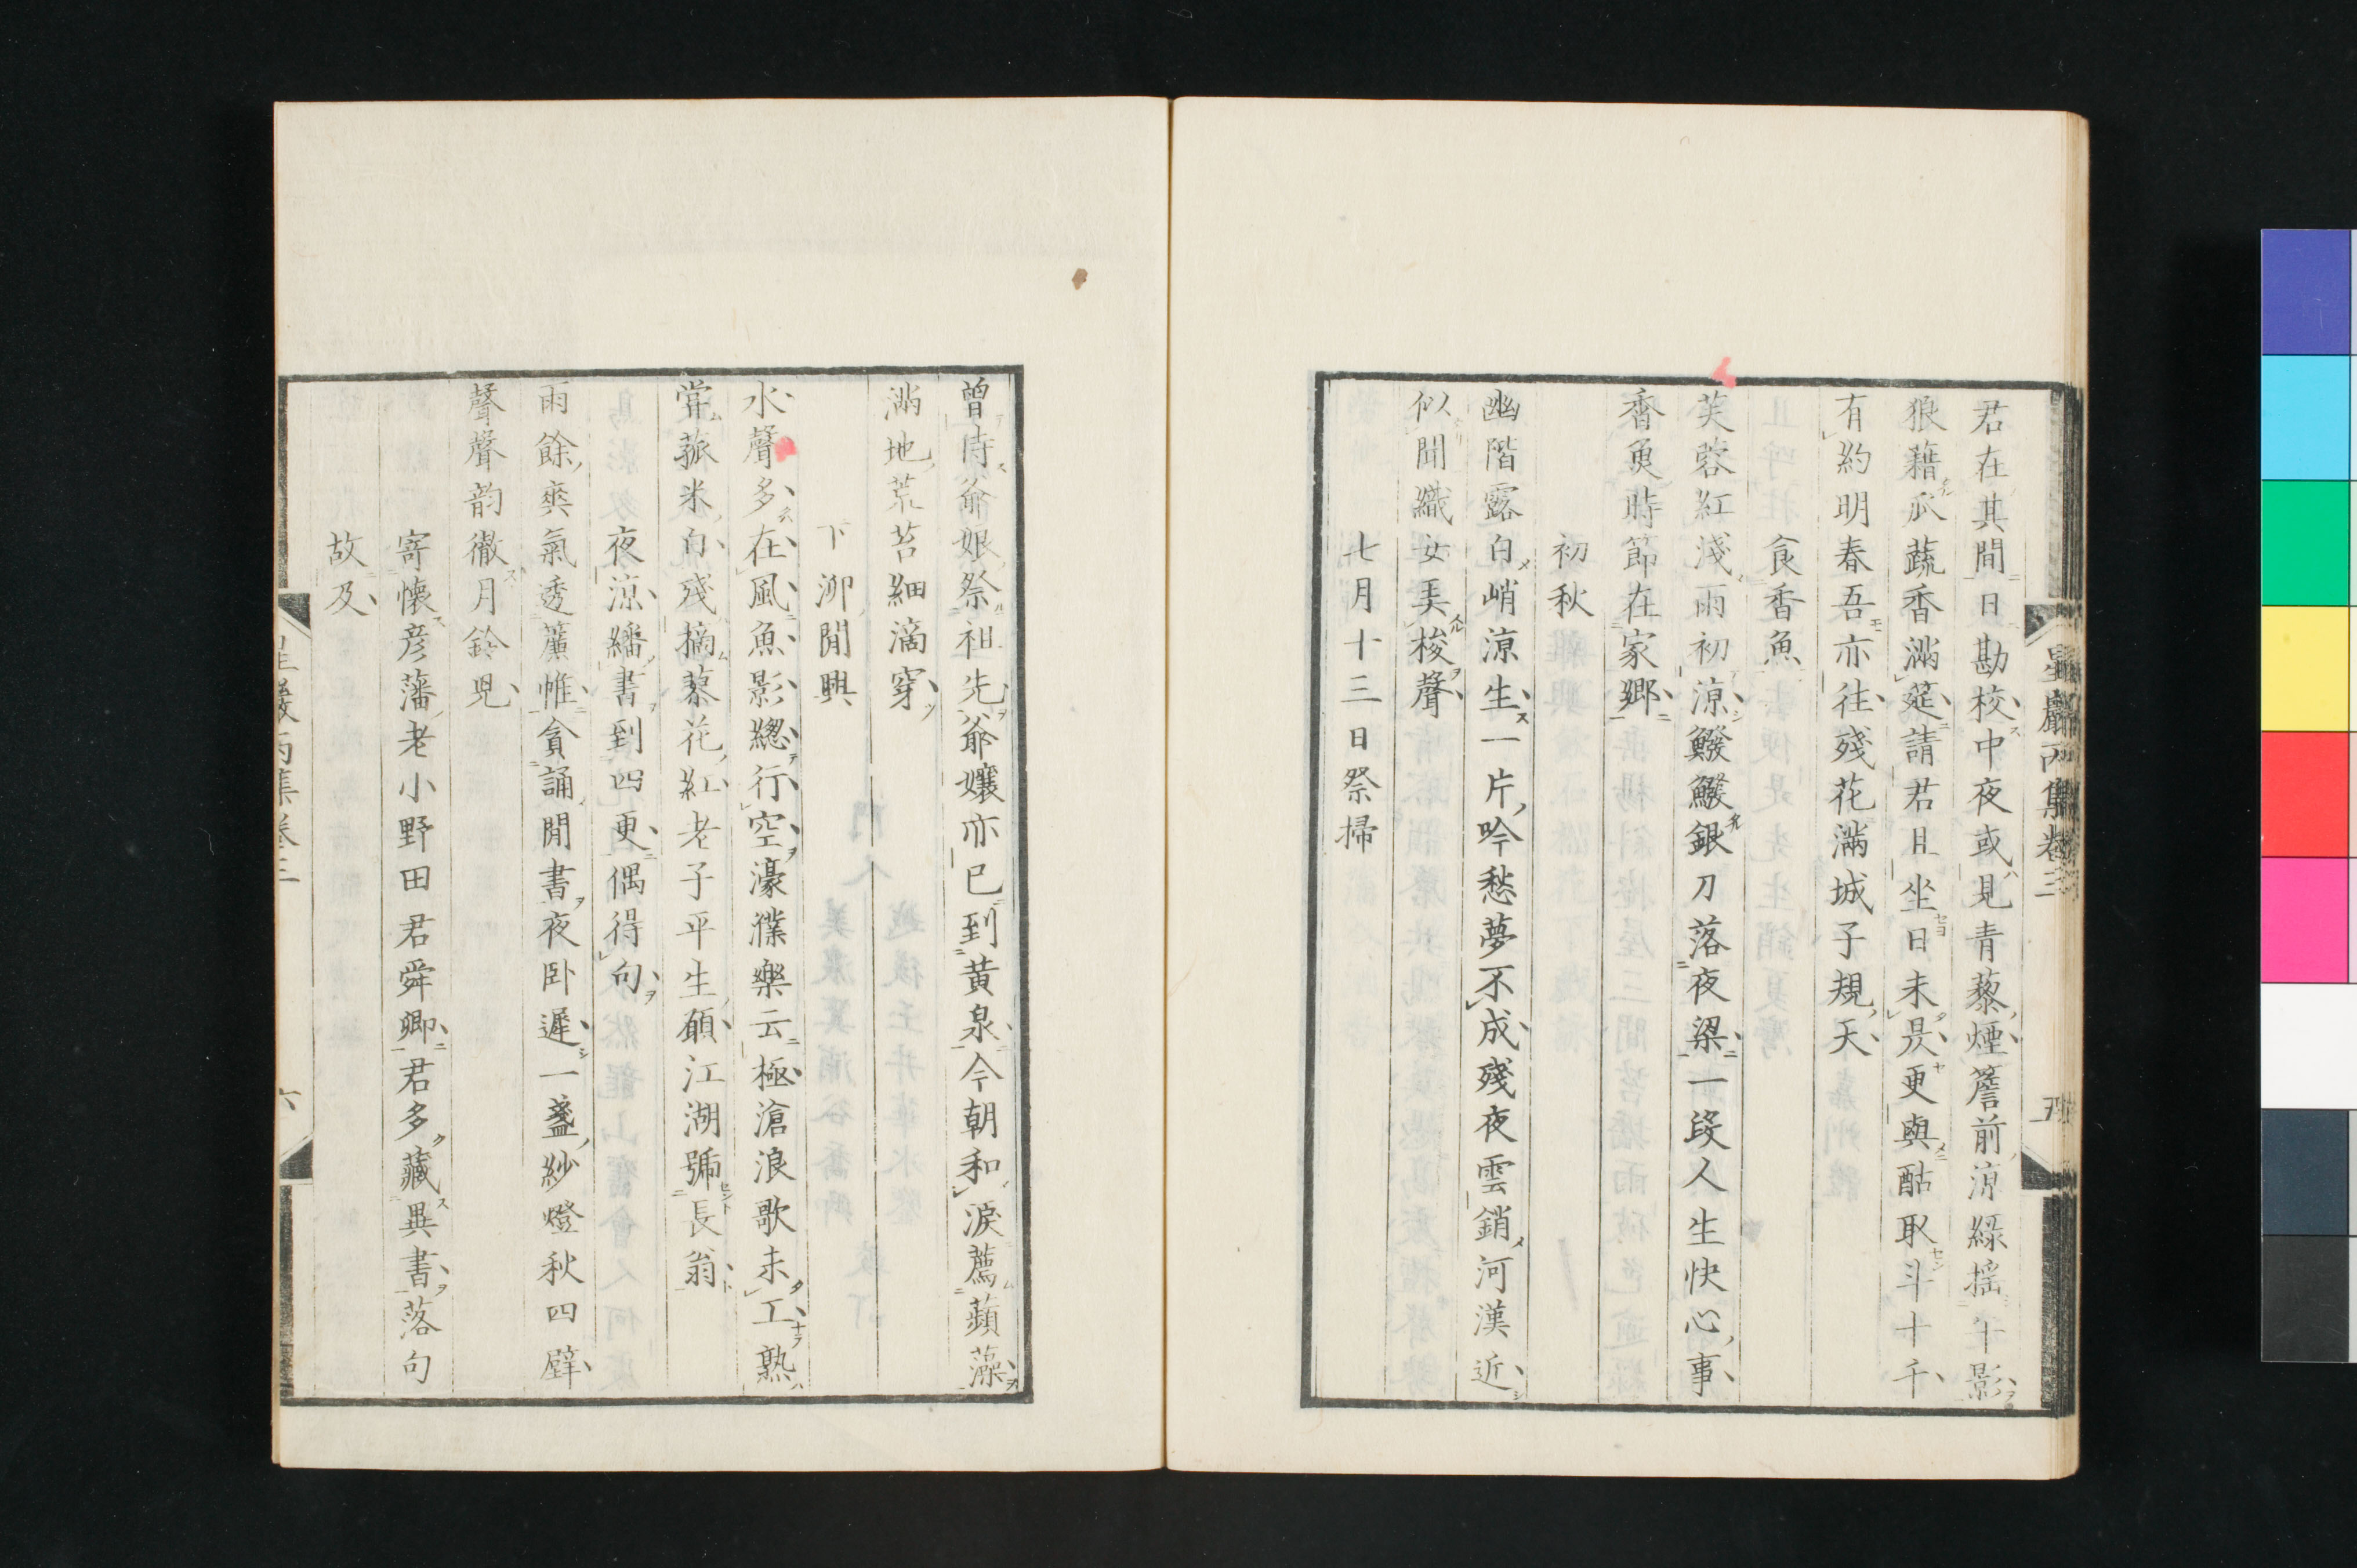 星巖丙集卷三
五
君在其間日勘校中夜或見青藜煙簷前涼綠搖午影
狼藉瓜蔬香滿筵請君且坐日未昃更與酤取斗十千
有約明春吾亦往殘花滿城子規天
食香魚
芙蓉紅淺雨初涼鱍鱍銀刀落夜梁一段人生快心事
香魚時節在家鄉
初秋
幽階露白峭涼生一片吟愁夢不成殘夜雲銷河漢近
似聞織女弄梭聲
七月十三日祭掃
曾侍爺娘祭祖先爺孃亦已到黃泉今朝和淚薦蘋藻
滿地荒苔細滴穿
下泖閒興
水聲多在風魚影總行空濠濮樂云極滄浪歌未工熟
嘗菰米白殘摘蓼花紅老子平生願江湖號長翁
夜涼繙書到四更偶得句
雨餘爽氣透簾帷貪誦閒書夜臥遲一盞紗燈秋四壁
聲聲韵徹月鈴兒
寄懷彥藩老小野田君舜卿君多藏異書落句
故及
星巖丙集卷三
六